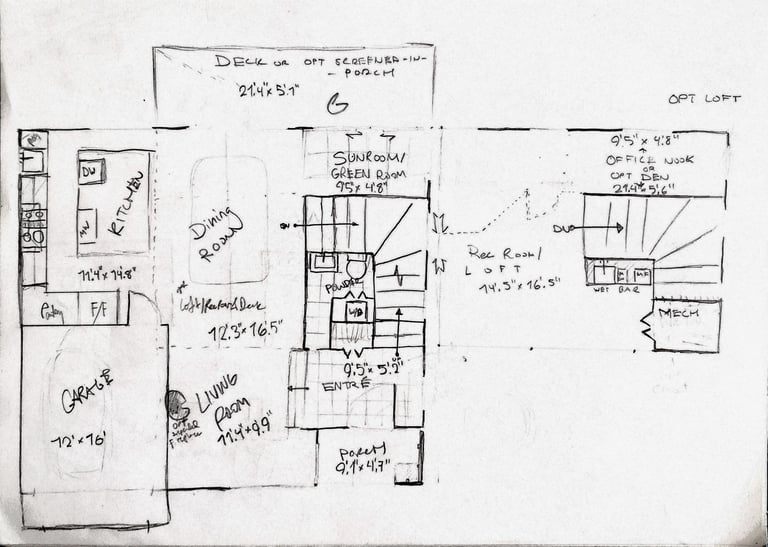 DECK OR OPT SCREENED-IN-
PORCH
21'.4"x 5'.1"
OPT LOFT
9'.5" x 4'.8"
OFFICE NOOK
OR
OPT DEN
21'.4"x 5'.6"
SUNROOM/
GREEN ROOM
9'5"x 4'.8"
DW
KITCHEN
MW
11'.4"x 14'.8"
Dining
ROOM
12'.3"x 16'.5"
Pantry
F/F
POWDER
W/D
REC ROOM/
LOFT
14'.5"x 16'.5"
WET BAR
MECH
9'.5"x 5'.2"
UP
ENTRÉ
GARAGE
12' x 16'
LIVING
ROOM
11'.4"x 9'.9"
PORCH
9'.1"x 4'.7"